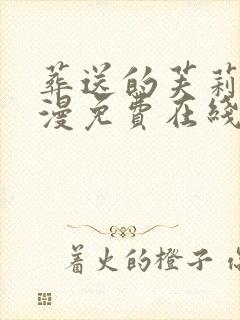 葬送的芙莉
漫免费在线
着火的橙子